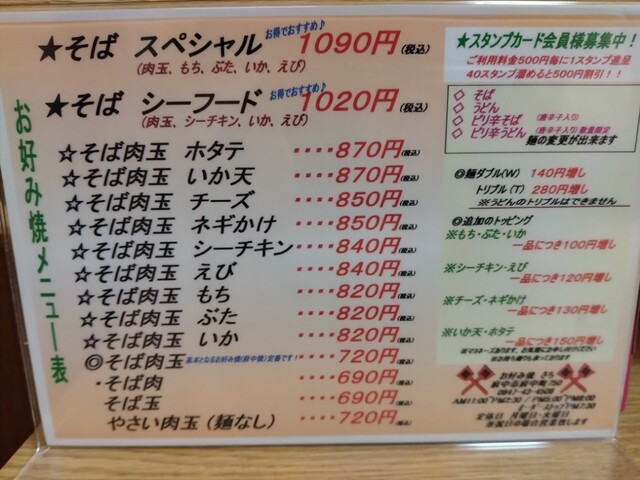 お好み焼メニュー表
★そば スペシャル お得でおすすめ♪ 1090円(税込)
(肉玉、もち、ぶた、いか、えび)
★そば シーフード お得でおすすめ♪ 1020円(税込)
(肉玉、シーチキン、いか、えび)
☆そば肉玉 ホタテ ････870円(税込)
☆そば肉玉 いか天 ････870円(税込)
☆そば肉玉 チーズ ････850円(税込)
☆そば肉玉 ネギかけ ････850円(税込)
☆そば肉玉 シーチキン ････840円(税込)
☆そば肉玉 えび ････840円(税込)
☆そば肉玉 もち ････820円(税込)
☆そば肉玉 ぶた ････820円(税込)
☆そば肉玉 いか ････820円(税込)
◎そば肉玉 基本となるお好み焼(府中焼)定番です! ････720円(税込)
・そば肉 ････690円(税込)
そば玉 ････690円(税込)
やさい肉玉(麺なし) ････720円(税込)
★スタンプカード会員様募集中!
ご利用料金500円毎に1スタンプ進呈
40スタンプ溜めると500円割引!!
◇ そば
◇ うどん
◇ ピリ辛そば (唐辛子入り)
◇ ピリ辛うどん (唐辛子入り)数量限定
麺の変更が出来ます
◎麺ダブル(W) 140円増し
トリプル(T) 280円増し
※うどんのトリプルはできません
◎追加のトッピング
※もち・ぶた・いか
一品につき100円増し
※シーチキン・えび
一品につき120円増し
※チーズ・ネギかけ
一品につき130円増し
※いか天・ホタテ
一品につき150円増し
※マヨネーズあります、お気軽にお申し付けください
※お持ち帰りも承っております
お好み焼 さち
府中市府中町750
0847-43-4506
AM11:00~PM2:30 / PM5:00~PM8:00
オーダーストップPM7:30
定休日 月曜日・火曜日